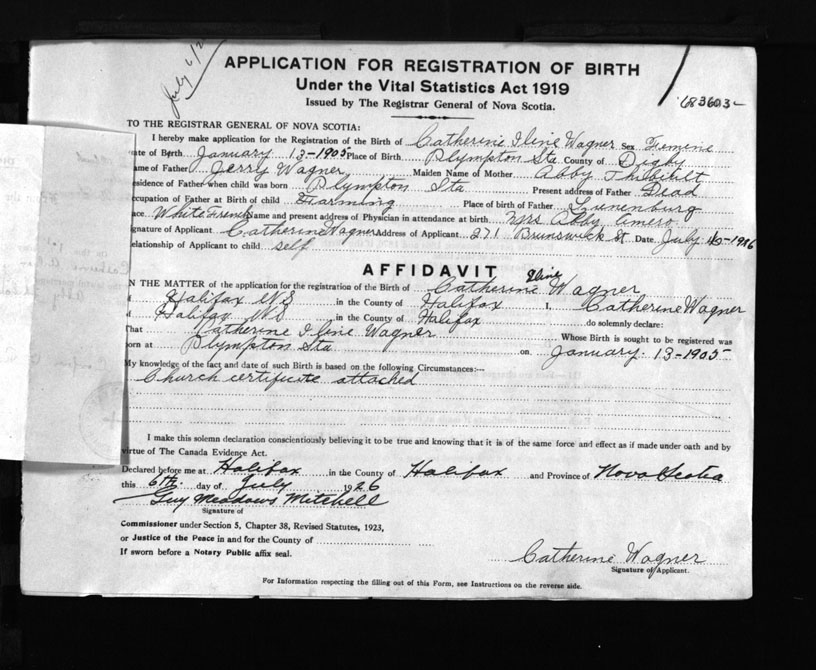 July 6/2
APPLICATION FOR REGISTRATION OF BIRTH
Under the Vital Statistics Act 1919
Issued by The Registrar General of Nova Scotia.
TO THE REGISTRAR GENERAL OF NOVA SCOTIA:
I hereby make application for the Registration of the Birth of Catherine Iline Wagner Sex Femine
ate of Birth January 13-1905 Place of Birth Plympton Sta County of Digby
ame of Father Jerry Wagner Maiden Name of Mother Abby
esidence of Father when child was born Plympton Sta Present address of Father Dead
ccupation of Father at Birth of child Farming Place of birth of Father Lunenburg
ace White French Name and present address of Physician in attendance at birth Mrs Abby Amero
ignature of Applicant Catherine Wagner Address of Applicant 271 Brunswick St Date July
elationship of Applicant to child self
AFFIDAVIT
IN THE MATTER of the application for the registration of the Birth of Catherine Iline Wagner
f Halifax NS in the County of Halifax I, Catherine Wagner
f Halifax NS in the County of Halifax do solemnly declare:
That Catherine Iline Wagner Whose Birth is sought to be registered was
orn at Plympton Sta on January 13-1905
My knowledge of the fact and date of such Birth is based on the following Circumstances:--
Church certificate attached
I make this solemn declaration conscientiously believing it to be true and knowing that it is of the same force and effect as if made under oath and by
virtue of The Canada Evidence Act.
Declared before me at Halifax in the County of Halifax and Province of Nova Scotia
this 6th day of July 1926
Guy Meadows Mitchell
Signature of
Commissioner under Section 5, Chapter 38, Revised Statutes, 1923,
or Justice of the Peace in and for the County of
If sworn before a Notary Public affix seal.
Catherine Wagner
Signature of Applicant.
For Information respecting the filling out of this Form, see Instructions on the reverse side.